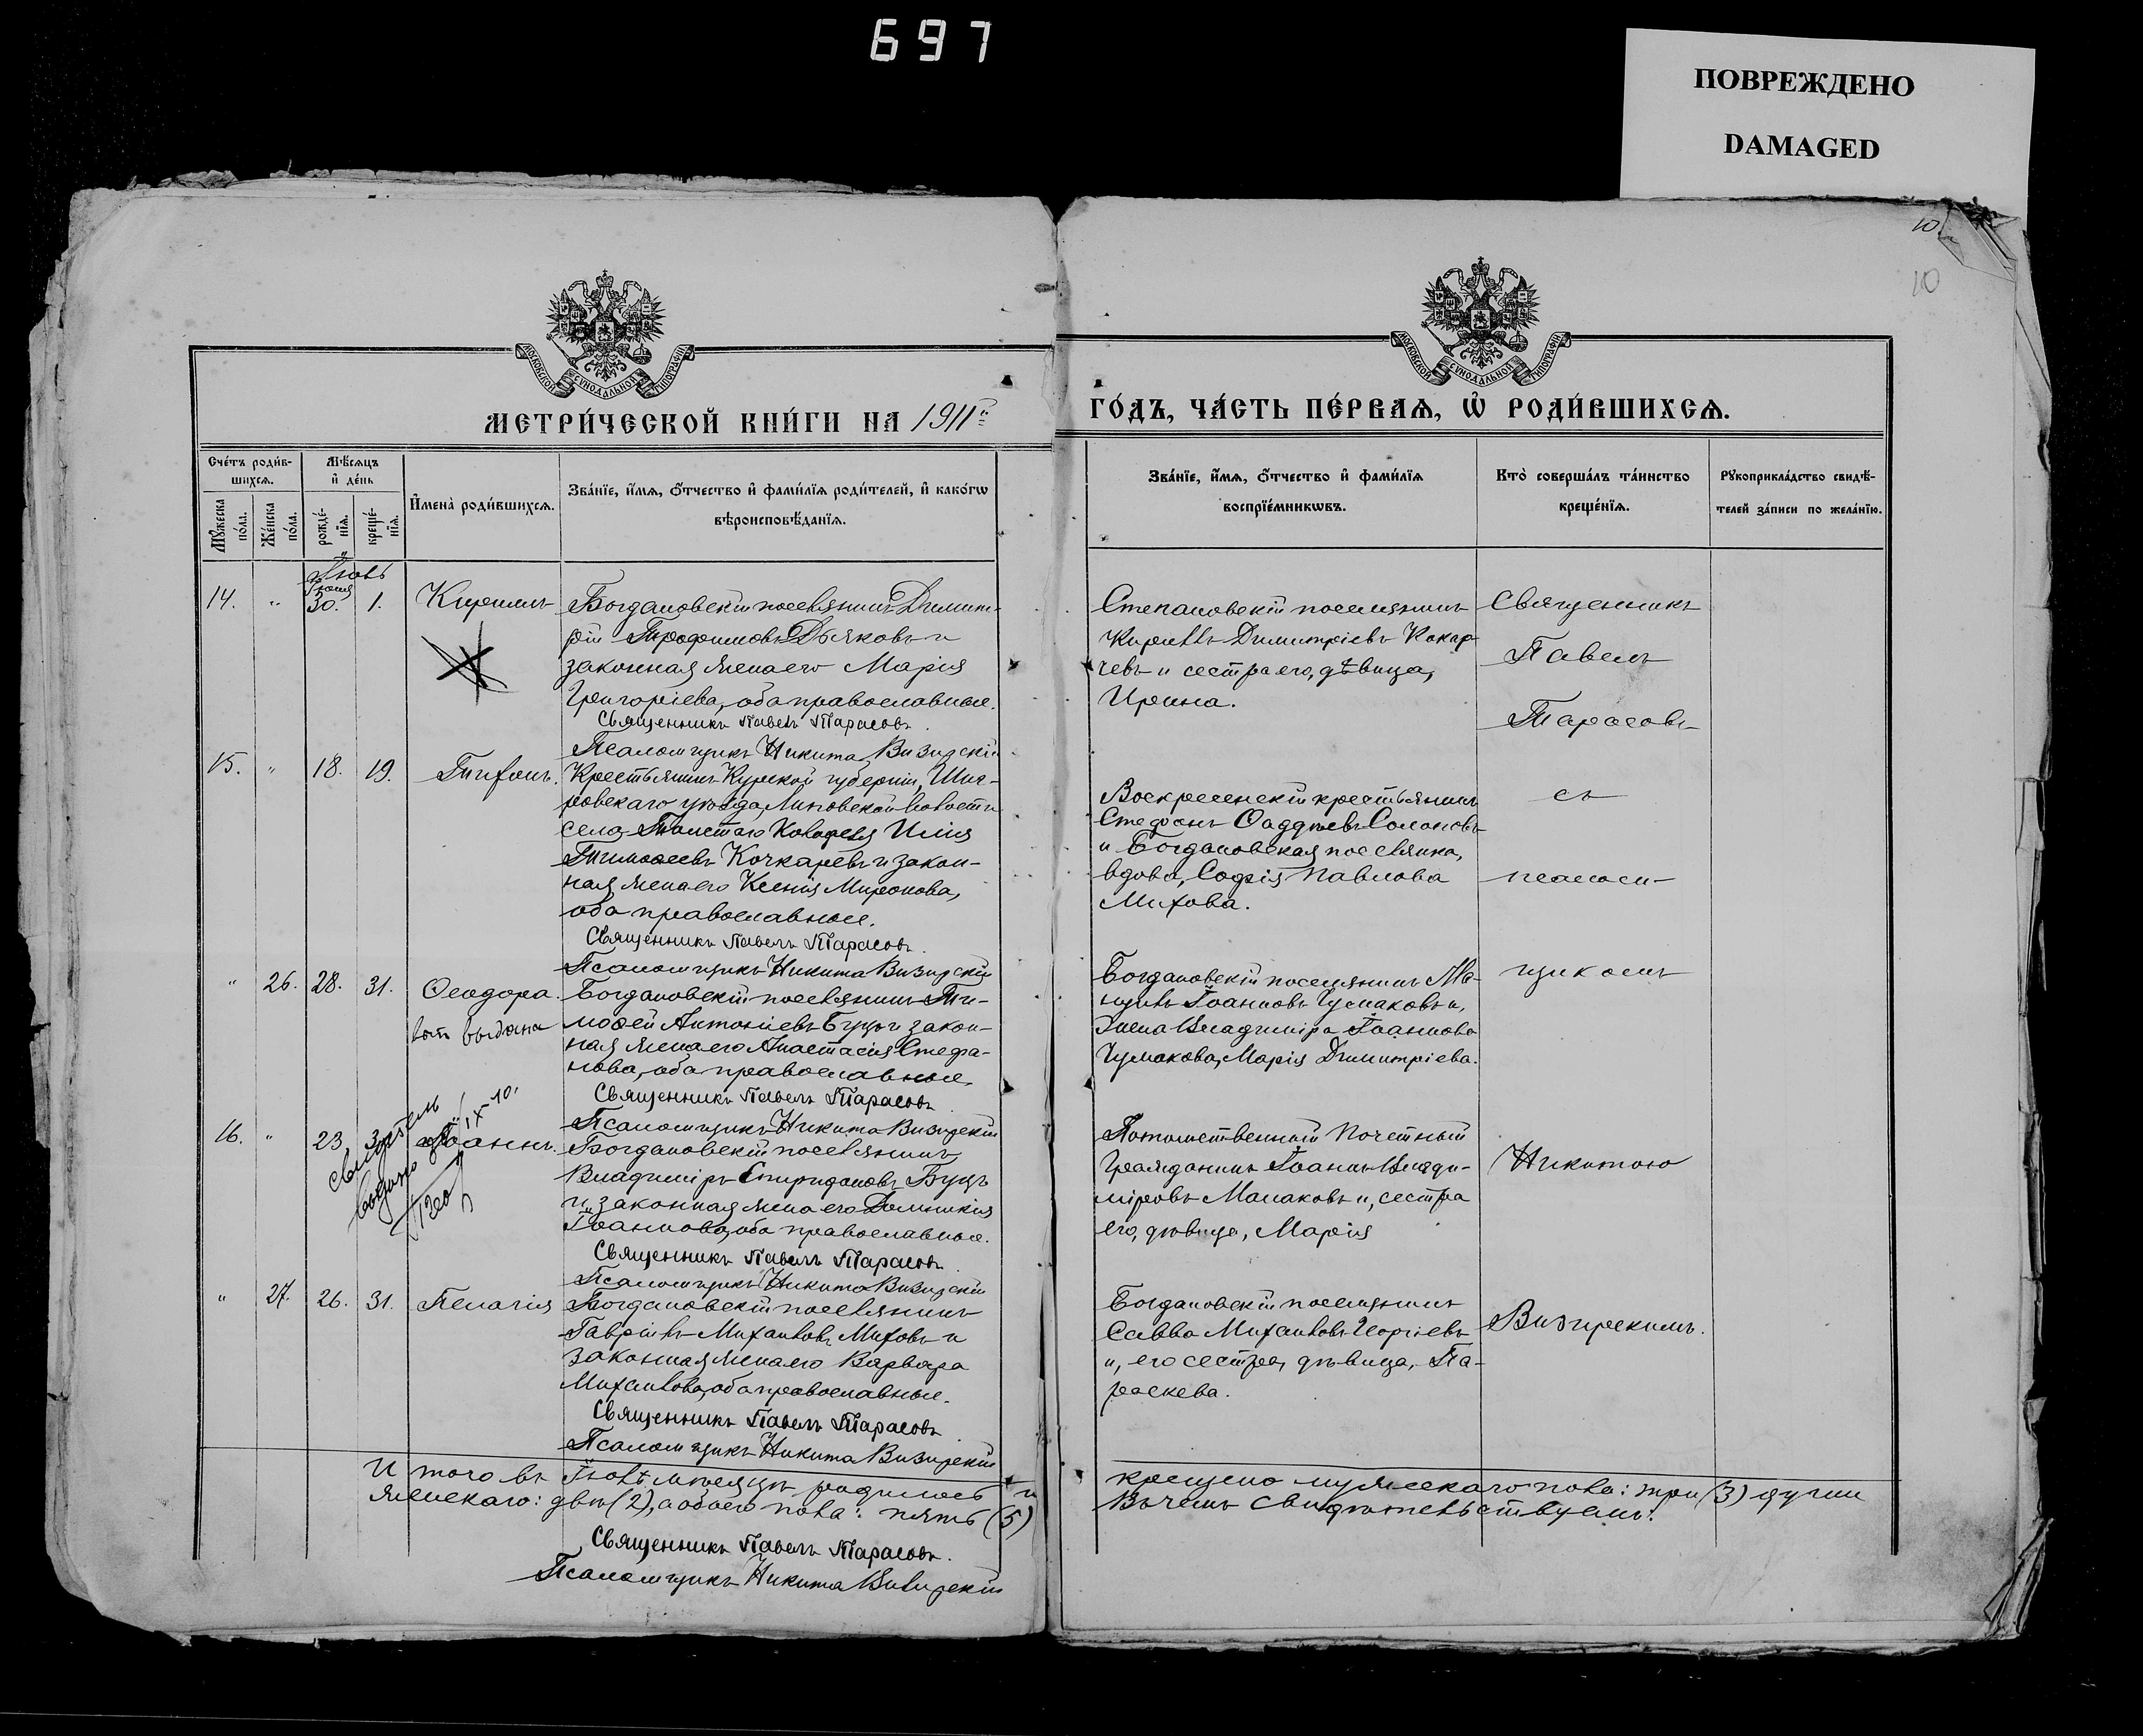 697
ПОВРЕЖДЕНО
DAMAGED
10
10
МОСКОВСКОЙ СѴНОДАЛЬНОЙ ТИПОГРАФІИ
МОСКОВСКОЙ СѴНОДАЛЬНОЙ ТИПОГРАФІИ
МЕТРИ́ЧЕСКОЙ КНИ́ГИ НА 1911й
ГО́ДЪ, ЧА́СТЬ ПЕ́РВАѦ, Ѡ҆ РОДИ́ВШИХСѦ.
Сче́тъ роди́в-
шихсѧ.
Мꙋ́жеска по́ла.
Же́нска по́ла.
Мѣ́сѧцъ
и҆ де́нь
рожде́-нїѧ.
креще́-нїѧ.
И҆мена̀ роди́вшихсѧ.
Зва́нїе, и҆́мѧ, о҆́тчество и҆ фами́лїѧ роди́телей, и҆ како́гѡ
вѣроисповѣ́данїѧ.
Зва́нїе, и҆́мѧ, о҆́тчество и҆ фами́лїѧ
воспрїе́мникѡвъ.
Кто̀ соверша́лъ та́инство
креще́нїѧ.
Рꙋкоприкла́дство свидѣ́-
телей за́писи по жела́нїю.
Іюль
Іюня
14. " 30. 1. Кириллъ
Богдановскій поселянинъ Димит-
рій Трофимовъ Дьяковъ и
законная жена его Марія
Григоріева, оба православные.
Священникъ Павелъ Тарасовъ
Псаломщикъ Никита Визирскій
Степановскій поселянинъ
Кириллъ Димитріевъ Кокар-
чевъ и сестра его, дѣвица,
Ирина.
Священникъ
Павелъ
Тарасовъ
15. " 18. 19. Тихонъ.
Крестьянинъ Курской губерніи, Щиг-
ровскаго уѣзда, Липовской волости
села Толстаго Колодезя Илія
Тимоѳеевъ Кочкаревъ и закон-
ная жена его Ксенія Миронова,
оба православные.
Священникъ Павелъ Тарасовъ
Псаломщикъ Никита Визирскій
Воскресенскій крестьянинъ
Стефанъ Ѳаддѣевъ Солоповъ
и Богдановская поселянка,
вдова, Софія Павлова
Михова.
съ
псалом-
" 26. 28. 31. Ѳеодора.
выдана
Богдановскій поселянинъ Ти-
моѳей Антоніевъ Буцъ и закон-
ная жена его Анастасія Стефа-
нова, оба православные.
Священникъ Павелъ Тарасовъ
Псаломщикъ Никита Визирскій
Богдановскій поселянинъ
Іоанновъ Чумаковъ и,
жена Владиміра Іоаннова
Чумакова, Марія Димитріева.
щикомъ
16. " 23. 31. Іоаннъ.
Богдановскій поселянинъ
Владиміръ Спиридоновъ Буцъ
и законная жена его Домникія
Іоаннова, оба православные.
Священникъ Павелъ Тарасовъ
Псаломщикъ Никита Визирскій
Потомственный Почетный
Гражданинъ Іоаннъ Влади-
міровъ Малаковъ и, сестра
его, дѣвица, Марія
Никитою
" 27. 26. 31. Пелагія
Богдановскій поселянинъ
Гавріилъ Михаиловъ Миховъ и
законная жена его Варвара
Михаилова, оба православные.
Священникъ Павелъ Тарасовъ
Псаломщикъ Никита Визирскій
Богдановскій поселянинъ
Савва Михаиловъ Георгіевъ
и, его сестра, дѣвица, Па-
раскева.
Визирскимъ.
Итого въ Іюлѣ мѣсяцѣ родилось и
крещено мужескаго пола: три (3) души
женскаго: двѣ (2), а обоего пола: пять (5)
Въ чемъ свидѣтельствуемъ:
Священникъ Павелъ Тарасовъ.
Псаломщикъ Никита Визирскій